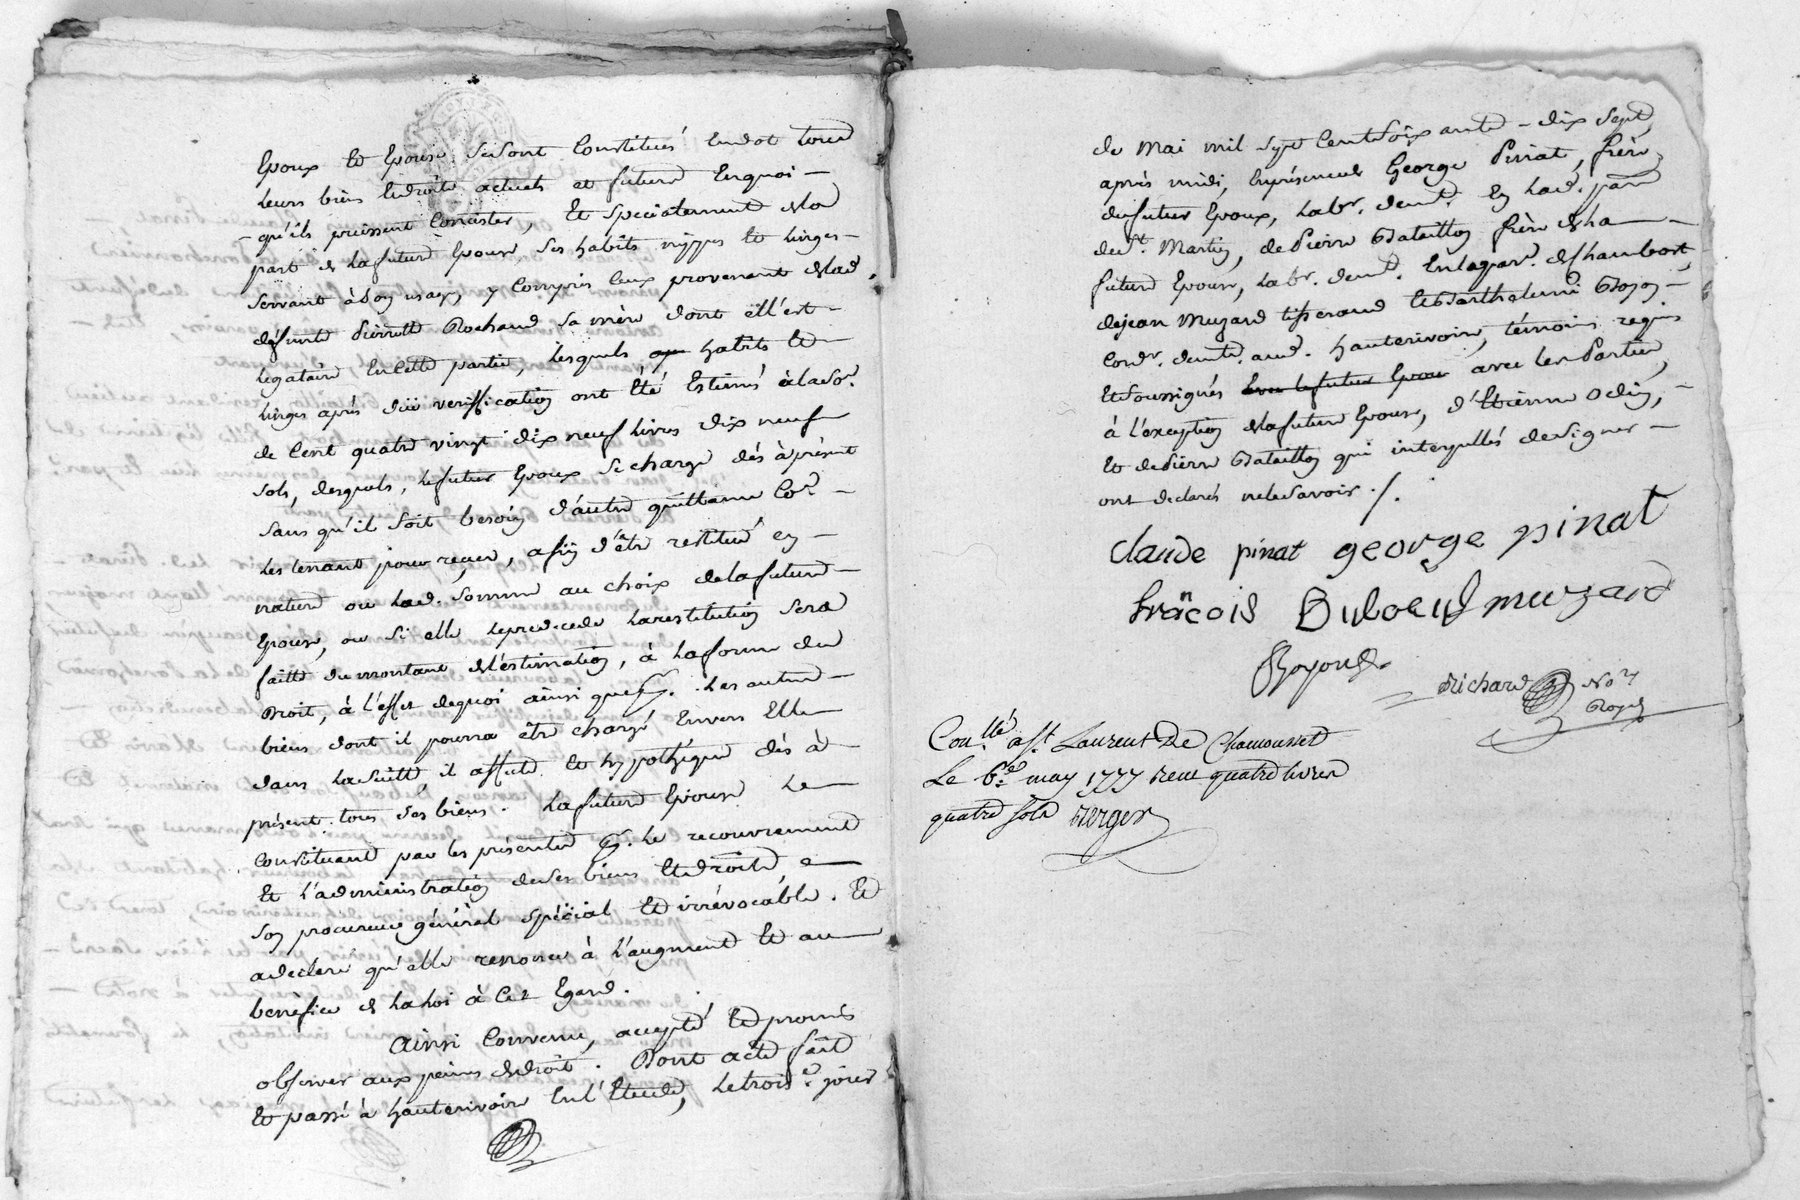 Epoux et Epouse se sont Constitués en dot tous
leurs biens et droits actuels et futurs en quoi
qu'ils puissent Consister, Et specialement de la
part de la future Epouse, ses habits nippes et linges
servant à son usage, y compris ceux provenant de lad.
défunte Pierrette Rochand sa mère dont ell'est
legataire En cette partie, lesquels habits et
linges après düe veriffication ont Eté Estimés à la so.e
de Cent quatre vingt dix neuf livres dix neuf
sols, desquels, le futur Epoux se charge dés à présent
sans qu'il soit besoin d'autre quittance Cont.
les tenant pour reçus, afin d'être restitué en
nature ou lad. somme au choix de la future
Epouse, ou si elle leprédecede la restitution sera
faitte du montant de l'estimation, à la forme du
Droit, à l'effet de quoi ainsi que les autres
biens dont il pourra être chargé Envers Elle
dans la suitte, il affecte et hypothéque dés à
présent tous ses biens. La future Epouse le
Constituant par les présentes pr. le recouvrement
Et l'administration de ses biens Et droits
son procureur général spécial et irrévocable. Et
a declaré qu'elle renonce à l'augment et au
bénéfice de la loi à Cet Egard.
Ainsi Convenu, accepté Et promis
observer aux peines de droit. Dont acte fait
Et passé à hauterivoire En l'Etude, le trois.e jour
de Mai mil sept Cent soixante - dix sept,
après midi, En présence de George Pinat, frère
du futur Epoux, labr. demt. En lad. parr
de St. Martin, de Pierre Bataillon frère de la
future Epouse, labr. demt. En la par. de Chambost,
de jean Muzard tisserand et Barthelemi Boyon
Cordr. demt. aud. hauterivoire, témoins requis
Et soussignés avec les Parties,
à l'exception de la future Epouse, d'Etienne Odin,
Et de Pierre Bataillon qui interpellés de signer
ont declarés ne le savoir ./.
claude pinat george pinat
francois Duboeuf muzard
Boyond
Richard No.re
Royal
Con.llé à St Laurent De Chamousset
Le 6.e may 1777 Reçu quatre livres
quatre sols Berger